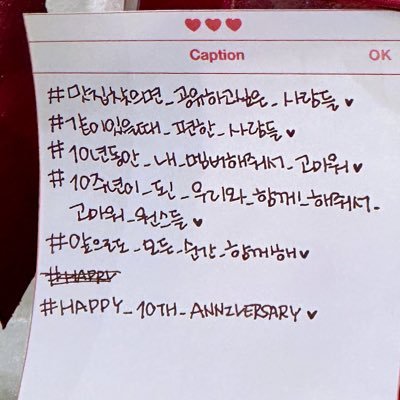 Caption
OK
#맛집찾으면_공유하고싶은_사람들♥
#같이있을때_편한_사람들♥
#10년동안_내_멤버해줘서_고마워♥
#10주년이_된_우리와_함께!_해줘서_
고마워_원스들♥
#앞으로도_모든_순간_함께해♥
#HAPPY
#HAPPY_10TH_ANNIVERSARY♥